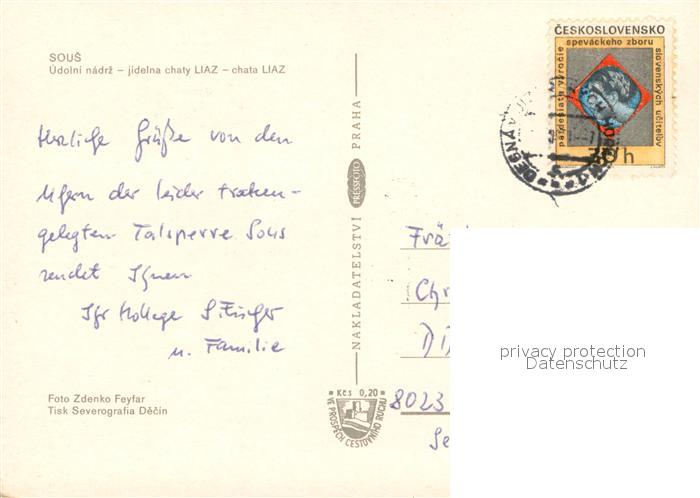 SOUŠ
Údolní nádrž – jídelna chaty LIAZ – chata LIAZ
Herzliche Grüße von den
Ufern der leider trocken-
gelegten Talsperre Sous
sendet Ihnen
Ihr Kollege S. Fischer
u. Familie
Foto Zdenko Feyfar
Tisk Severografia Děčín
NAKLADATELSTVÍ PRESSFOTO PRAHA
Kčs 0,20
VE PROSPĚCH CESTOVNÍHO RUCHU
ČESKOSLOVENSKO
päťdesiate výročie
speváckeho zboru
slovenských učiteľov
30 h
DESNÁ
Frä
Chr
DD
8023
Se
privacy protection
Datenschutz